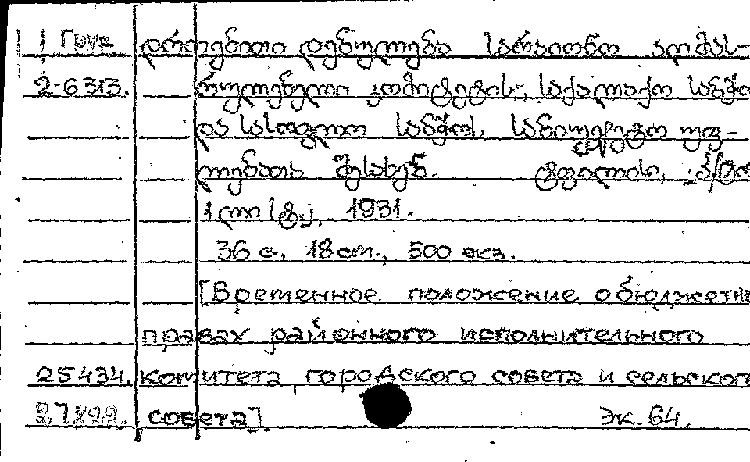 1 Груз დროებითი დებულება სარაიონო აღმას-
2-6313. რულებელი კომიტეტის, საქალაქო საბჭო
და სასოფლო საბჭოს, საბიუჯეტო უფ-
ლებათა შესახებ. ტფილისი,
36 с., 18 cm., 500 экз.
[Временное положение о бюджетн
правах районного исполнительного
25434. комитета, городского совета и сельского
совета]. Эк. 64.